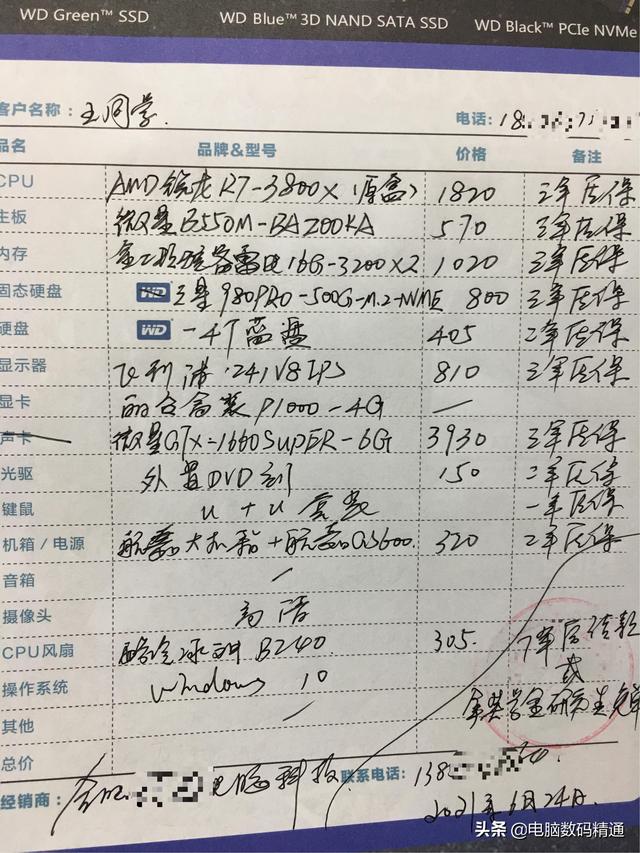 WD Green™ SSD WD Blue™ 3D NAND SATA SSD WD Black™ PCIe NVMe
客户名称: 王同学. 电话: 18
品名 品牌&型号 价格 备注
CPU AMD锐龙R7-3800X(原盒) 1820 三年质保
主板 微星B550M-BAZOOKA 570 三年质保
内存 16G-3200X2 1020 三年质保
固态硬盘 WD 三星980PRO-500G-M.2-NVME 800 三年质保
硬盘 WD -4T蓝盘 405 二年质保
显示器 飞利浦.241V8 IPS 810 三年质保
显卡 丽台盒装P1000-4G —
声卡 微星GTX-1660SUPER-6G 3930 三年质保
光驱 外置DVD刻 150 二年质保
键鼠 U+U套装 一年质保
机箱/电源 航嘉 + 航嘉GS600. 320 二年质保
音箱
摄像头 高清
CPU风扇 B240 305.
操作系统 Windows 10
或
其他
总价
经销商: 合肥 电脑科技 联系电话: 138
2021年6月24日.
头条 @电脑数码精通